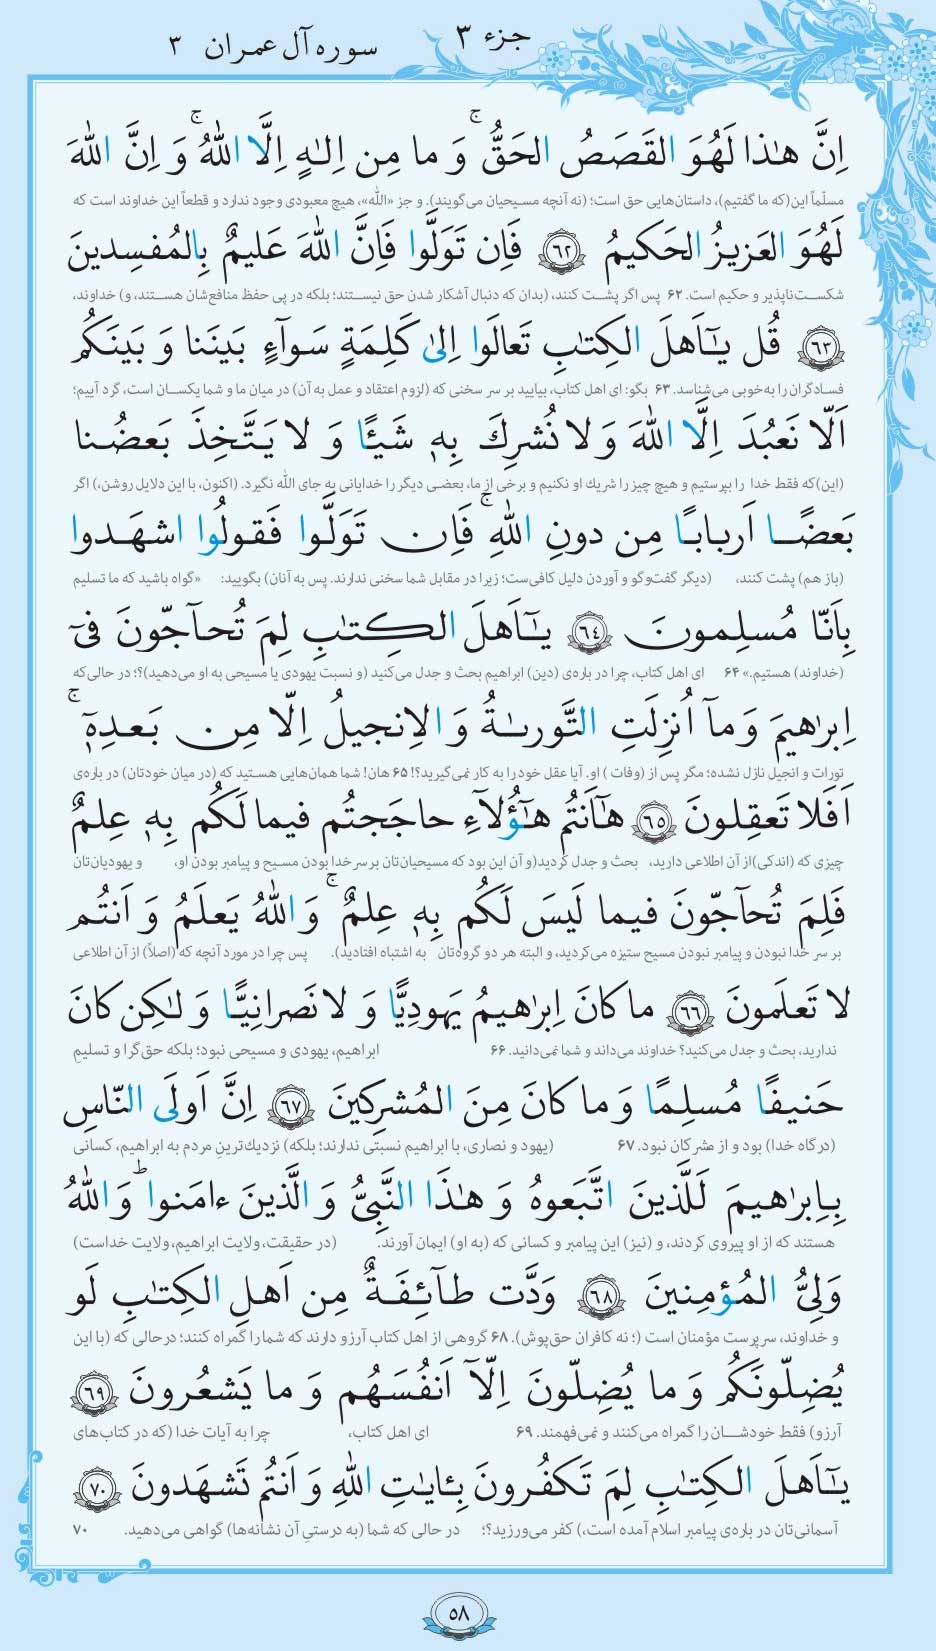 جزء ۳
سوره آل عمران ۳
اِنَّ هٰذا لَهُوَ القَصَصُ الحَقُّ ۚ وَ ما مِن اِلٰهٍ اِلَّا اللّٰهُ ۚ وَ اِنَّ اللّٰهَ
مسلّماً این(که ما گفتیم)، داستان‌هایی حق است؛ (نه آنچه مسیحیان می‌گویند). و جز «اللّٰه»، هیچ معبودی وجود ندارد و قطعاً این خداوند است که
لَهُوَ العَزیزُ الحَکیمُ ﴿۶۲﴾ فَاِن تَوَلَّوا فَاِنَّ اللّٰهَ عَلیمٌ بِالمُفسِدینَ
شکست‌ناپذیر و حکیم است. ۶۲ پس اگر پشت کنند، (بدان که دنبال آشکار شدن حق نیستند؛ بلکه در پی حفظ منافع‌شان هستند، و) خداوند،
﴿۶۳﴾ قُل یٰٓاَهلَ الکِتٰبِ تَعالَوا اِلیٰ کَلِمَةٍ سَوآءٍ بَینَنا وَ بَینَکُم
فسادگران را به‌خوبی می‌شناسد. ۶۳ بگو: ای اهل کتاب، بیایید بر سر سخنی که (لزوم اعتقاد و عمل به آن) در میان ما و شما یکسان است، گرد آییم؛
اَلّا نَعبُدَ اِلَّا اللّٰهَ وَ لا نُشرِکَ بِهٖ شَیئًا وَ لا یَتَّخِذَ بَعضُنا
(این)که فقط خدا را بپرستیم و هیچ چیز را شریك او نکنیم و برخی از ما، بعضی دیگر را خدایانی به جای اللّٰه نگیرد. (اکنون، با این دلایل روشن،) اگر
بَعضًا اَربابًا مِن دونِ اللّٰهِ ۚ فَاِن تَوَلَّوا فَقولُوا اشهَدوا
(باز هم) پشت کنند، (دیگر گفت‌وگو و آوردن دلیل کافی‌ست؛ زیرا در مقابل شما سخنی ندارند. پس به آنان) بگویید: «گواه باشید که ما تسلیم
بِاَنّا مُسلِمونَ ﴿۶۴﴾ یٰٓاَهلَ الکِتٰبِ لِمَ تُحآجّونَ فیٓ
(خداوند) هستیم.» ۶۴ ای اهل کتاب، چرا در باره‌ی (دین) ابراهیم بحث و جدل می‌کنید (و نسبت یهودی یا مسیحی به او می‌دهید)؟؛ در حالی‌که
اِبرٰهیمَ وَ مآ اُنزِلَتِ التَّورىٰةُ وَ الاِنجیلُ اِلّا مِن بَعدِهٖٓ ۚ
تورات و انجیل نازل نشده؛ مگر پس از (وفات ) او. آیا عقل خود را به کار نمی‌گیرید؟! ۶۵ هان! شما همان‌هایی هستید که (در میان خودتان) در باره‌ی
اَفَلا تَعقِلونَ ﴿۶۵﴾ هٰٓاَنتُم هٰٓؤُلآءِ حاجَجتُم فیما لَکُم بِهٖ عِلمٌ
چیزی که (اندکی)از آن اطلاعی دارید، بحث و جدل کردید(و آن این بود که مسیحیان‌تان بر سر خدا بودن مسیح و پیامبر بودن او، و یهودیان‌تان
فَلِمَ تُحآجّونَ فیما لَیسَ لَکُم بِهٖ عِلمٌ ۚ وَ اللّٰهُ یَعلَمُ وَ اَنتُم
بر سر خدا نبودن و پیامبر نبودن مسیح ستیزه می‌کردید، و البته هر دو گروه‌تان به اشتباه افتادید). پس چرا در مورد آنچه که (اصلاً) از آن اطلاعی
لا تَعلَمونَ ﴿۶۶﴾ ما کانَ اِبرٰهیمُ یَهودِیًّا وَ لا نَصرانِیًّا وَ لٰکِن کانَ
ندارید، بحث و جدل می‌کنید؟ خداوند می‌داند و شما نمی‌دانید. ۶۶ ابراهیم، یهودی و مسیحی نبود؛ بلکه حق‌گرا و تسلیمِ
حَنیفًا مُسلِمًا وَ ما کانَ مِنَ المُشرِکینَ ﴿۶۷﴾ اِنَّ اَولَی النّاسِ
(درگاه خدا) بود و از مشرکان نبود. ۶۷ (یهود و نصاری، با ابراهیم نسبتی ندارند؛ بلکه) نزدیك‌ترینِ مردم به ابراهیم، کسانی
بِاِبرٰهیمَ لَلَّذینَ اتَّبَعوهُ وَ هٰذَا النَّبِیُّ وَ الَّذینَ ءامَنوا ۗ وَ اللّٰهُ
هستند که از او پیروی کردند، و (نیز) این پیامبر و کسانی که (به او) ایمان آورند. (در حقیقت، ولایت ابراهیم، ولایت خداست)
وَلِیُّ المُؤمِنینَ ﴿۶۸﴾ وَدَّت طآئِفَةٌ مِن اَهلِ الکِتٰبِ لَو
و خداوند، سرپرست مؤمنان است (؛ نه کافران حق‌پوش). ۶۸ گروهی از اهل کتاب آرزو دارند که شما را گمراه کنند؛ درحالی که (با این
یُضِلّونَکُم وَ ما یُضِلّونَ اِلّآ اَنفُسَهُم وَ ما یَشعُرونَ ﴿۶۹﴾
آرزو) فقط خودشان را گمراه می‌کنند و نمی‌فهمند. ۶۹ ای اهل کتاب، چرا به آیات خدا (که در کتاب‌های
یٰٓاَهلَ الکِتٰبِ لِمَ تَکفُرونَ بِـٔایٰتِ اللّٰهِ وَ اَنتُم تَشهَدونَ ﴿۷۰﴾
آسمانی‌تان در باره‌ی پیامبر اسلام آمده است،) کفر می‌ورزید؟؛ در حالی که شما (به درستیِ آن نشانه‌ها) گواهی می‌دهید. ۷۰
۵۸